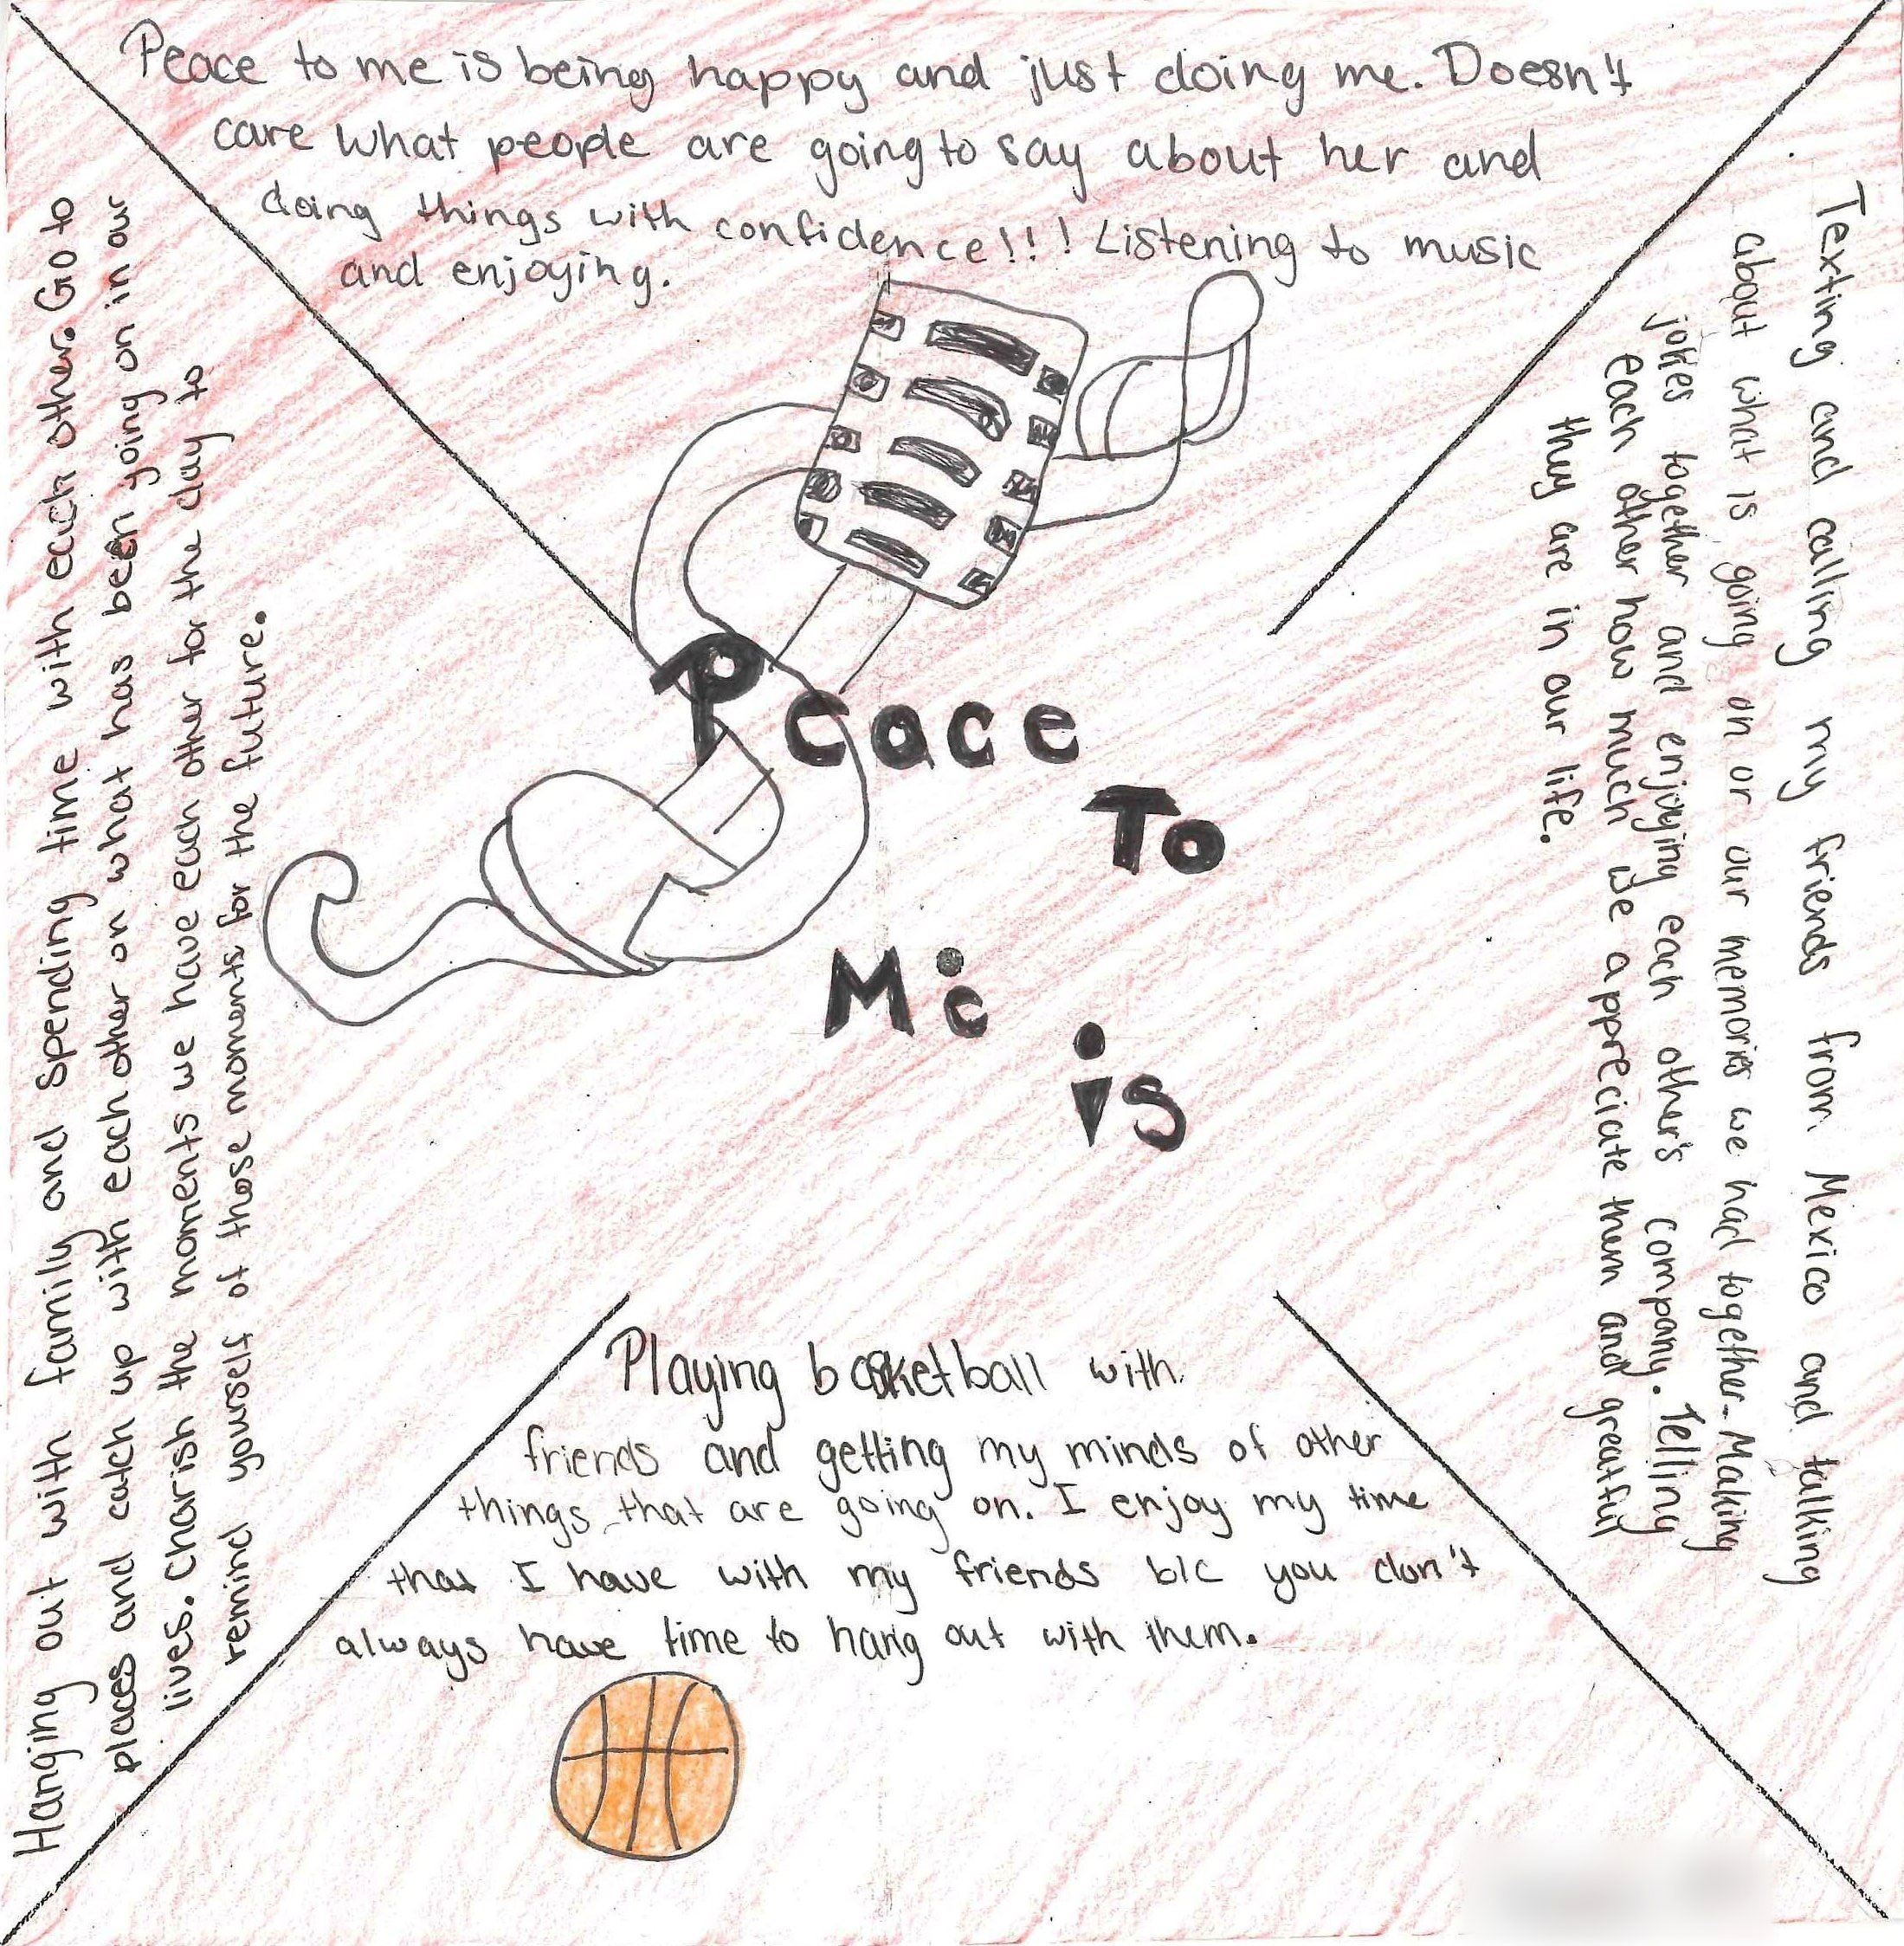 Peace to me is being happy and just doing me. Doesn't
care what people are going to say about her and
doing things with confidence!!! Listening to music
and enjoying.
Texting and calling my friends from Mexico and talking
about what is going on or our memories we had together. Making
jokes together and enjoying each other's company. Telling
each other how much we appreciate them and greatful
they are in our life.
Peace
To
Me
is
Hanging out with family and spending time with each other. Go to
places and catch up with each other on what has been going on in our
lives. Charish the moments we have each other for the day to
remind yourself of those moments for the future.
Playing basketball with
friends and getting my minds of other
things that are going on. I enjoy my time
that I have with my friends b/c you don't
always have time to hang out with them.